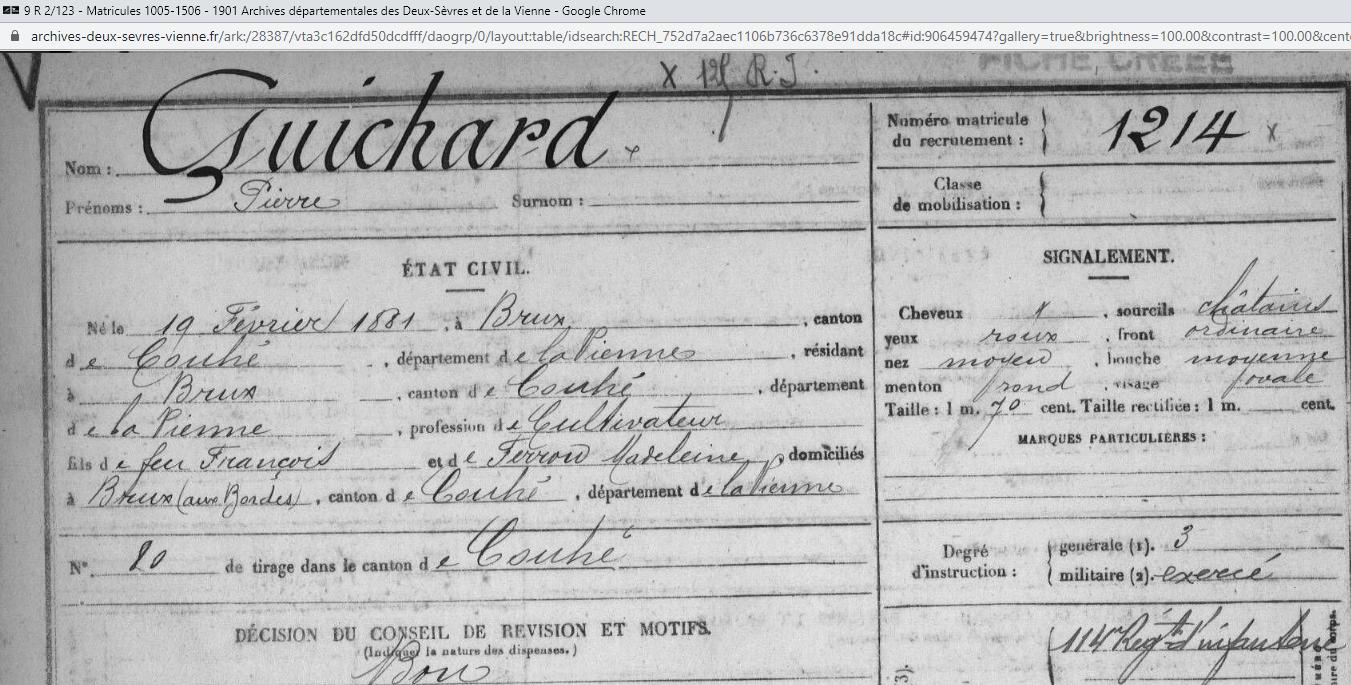 9 R 2/123 - Matricules 1005-1506 - 1901 Archives départementales des Deux-Sèvres et de la Vienne - Google Chrome
archives-deux-sevres-vienne.fr/ark:/28387/vta3c162dfd50dcdfff/daogrp/0/layout:table/idsearch:RECH_752d7a2aec1106b736c6378e91dda18c#id:906459474?gallery=true&brightness=100.00&contrast=100.00&cente
X 125 R.I.
FICHE CRÉÉE
Nom : Guichard x
Prénoms : Pierre Surnom :
Numéro matricule du recrutement : 1214 x
Classe de mobilisation :
ÉTAT CIVIL.
Né le 19 Février 1881, à Brux, canton
de Couhé, département de la Vienne, résidant
à Brux, canton de Couhé, département
de la Vienne, profession de Cultivateur
fils de feu François et de Ferron Madeleine, domiciliés
à Brux (aux Bordes), canton de Couhé, département de la Vienne
N° 20 de tirage dans le canton de Couhé
DÉCISION DU CONSEIL DE REVISION ET MOTIFS.
(Indiquer la nature des dispenses.)
Bon
SIGNALEMENT.
Cheveux x, sourcils châtains
yeux roux, front ordinaire
nez moyen, bouche moyenne
menton rond, visage ovale
Taille : 1 m. 70 cent. Taille rectifiée : 1 m. cent.
MARQUES PARTICULIÈRES :
Degré d'instruction :
générale (1). 3
militaire (2). exercé
114e Régt d'infanterie